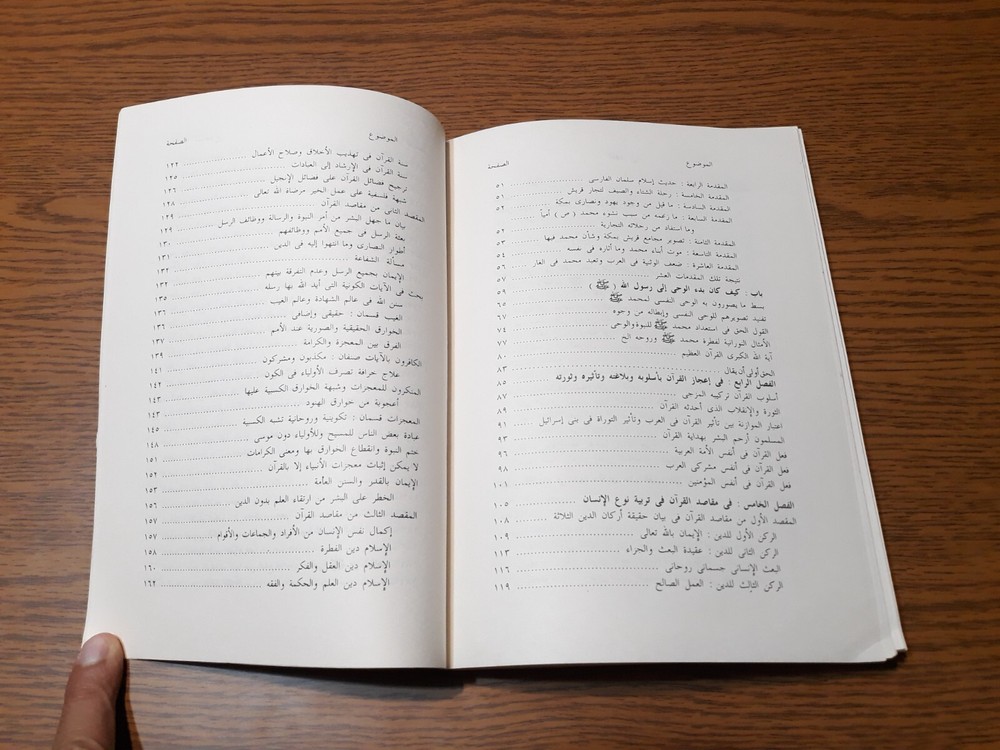 الموضوع الصفحة
المقدمة الرابعة : حديث إسلام سلمان الفارسى ٥١
المقدمة الخامسة : رحلة الشتاء والصيف لتجار قريش ٥١
المقدمة السادسة : ما قيل من وجود يهود ونصارى بمكة ٥٢
المقدمة السابعة : ما زعمه من سبب نشوء محمد ( ص ) أمياً
وما استفاد من رحلاته التجارية ٥٢
المقدمة الثامنة : تصوير مجامع قريش بمكة وشأن محمد فيها ٥٣
المقدمة التاسعة : موت أبناء محمد وما أثاره فى نفسه ٥٤
المقدمة العاشرة : ضعف الوثنية فى العرب وتعبد محمد فى الغار ٥٦
نتيجة تلك المقدمات العشر ٥٧
باب : كيف كان بدء الوحى إلى رسول الله ( ﷺ ) ٥٩
بسط ما يصورون به الوحى النفسى لمحمد ﷺ ٦٥
تفنيد تصويرهم للوحى النفسى وإبطاله من وجوه ٦٧
القول الحق فى استعداد محمد ﷺ للنبوة والوحى ٧٤
الأمثال النورانية لفطرة محمد ﷺ وروحه الخ ٧٧
آية الله الكبرى القرآن العظيم ٨٠
الحق أولى أن يقال ٨٣
الفصل الرابع : فى إعجاز القرآن بأسلوبه وبلاغته وتأثيره وثورته ٨٥
أسلوب القرآن تركيبه المزجى ٨٧
الثورة والإنقلاب الذى أحدثه القرآن ٨٩
اعتبار الموازنة بين تأثير القرآن فى العرب وتأثير التوراة فى بنى إسرائيل ٩١
المسلمون أرحم البشر بهداية القرآن ٩٣
فعل القرآن فى أنفس الأمة العربية ٩٦
فعل القرآن فى أنفس مشركى العرب ٩٨
فعل القرآن فى أنفس المؤمنين ١٠١
الفصل الخامس : فى مقاصد القرآن فى تربية نوع الإنسان ١٠٥
المقصد الأول من مقاصد القرآن فى بيان حقيقة أركان الدين الثلاثة ١٠٨
الركن الأول للدين : الإيمان بالله تعالى ١٠٩
الركن الثانى للدين : عقيدة البعث والجزاء ١١٣
البعث الإنسانى جسمانى روحانى ١١٦
الركن الثالث للدين : العمل الصالح ١١٩
الموضوع الصفحة
سنة القرآن فى تهذيب الأخلاق وصلاح الأعمال ١٢٢
سنة القرآن فى الإرشاد إلى العبادات ١٢٥
ترجيح فضائل القرآن على فضائل الإنجيل ١٢٦
شبهة فلسفية على عمل الخير مرضاة لله تعالى ١٢٨
المقصد الثانى من مقاصد القرآن
بيان ما جهل البشر من أمر النبوة والرسالة ووظائف الرسل ١٢٩
بعثة الرسل فى جميع الأمم ووظائفهم ١٣٠
أطوار النصارى وما انتهوا إليه فى الدين ١٣١
مسألة الشفاعة
الإيمان بجميع الرسل وعدم التفرقة بينهم ١٣٢
بحث فى الآيات الكونية التى أيد الله بها رسله ١٣٢
سنن الله فى عالم الشهادة وعالم الغيب ١٣٥
الغيب قسمان : حقيقى وإضافى ١٣٦
الخوارق الحقيقية والصورية عند الأمم ١٣٦
الفرق بين المعجزة والكرامة ١٣٧
الكافرون بالآيات صنفان : مكذبون ومشركون ١٣٩
علاج خرافة تصرف الأولياء فى الكون ١٤١
المنكرون للمعجزات وشبهة الخوارق الكسبية عليها ١٤٢
أعجوبة من خوارق الهنود ١٤٣
المعجزات قسمان : تكوينية وروحانية تشبه الكسبية ١٤٣
عبادة بعض الناس للمسيح وللأولياء دون موسى ١٤٥
ختم النبوة وانقطاع الخوارق بها ومعنى الكرامات ١٤٨
لا يمكن إثبات معجزات الأنبياء إلا بالقرآن ١٥١
الإيمان بالقدر والسنن العامة ١٥٢
الخطر على البشر من ارتقاء العلم بدون الدين ١٥٣
المقصد الثالث من مقاصد القرآن ١٥٦
إكمال نفس الإنسان من الأفراد والجماعات والأقوام ١٥٧
الإسلام دين الفطرة ١٥٧
الإسلام دين العقل والفكر ١٥٨
الإسلام دين العلم والحكمة والفقه ١٦٠
١٦٤